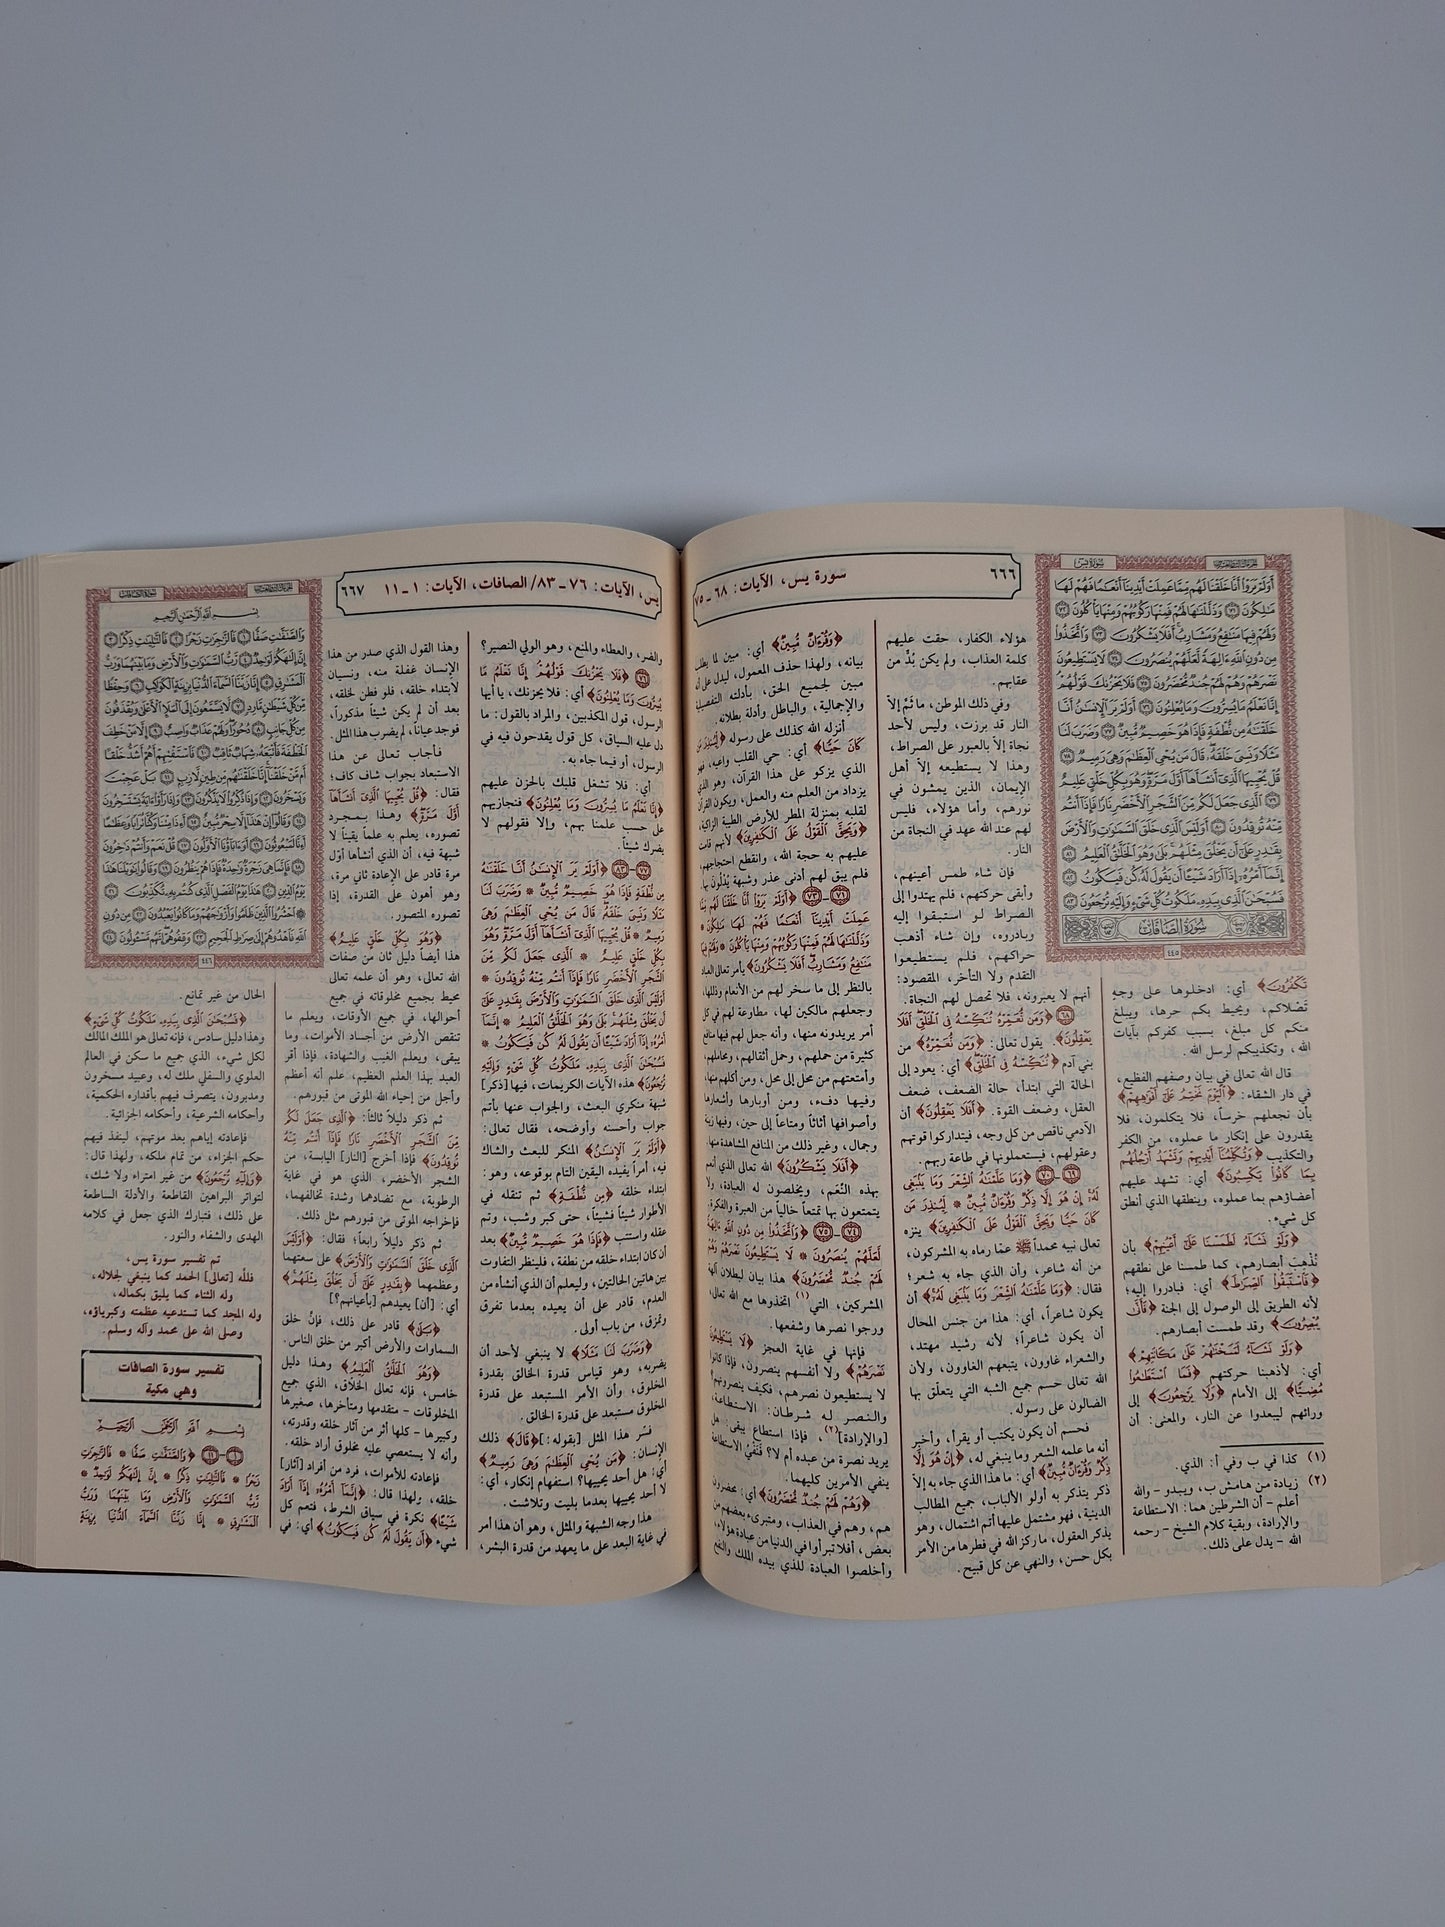 ٦٦٦
سورة يس، الآيات: ٦٨ ـ ٧٥
سورة يس
أَوَلَمْ يَرَوْا أَنَّا خَلَقْنَا لَهُم مِّمَّا عَمِلَتْ أَيْدِينَا أَنْعَامًا فَهُمْ لَهَا
مَالِكُونَ ﴿٧١﴾ وَذَلَّلْنَاهَا لَهُمْ فَمِنْهَا رَكُوبُهُمْ وَمِنْهَا يَأْكُلُونَ ﴿٧٢﴾
وَلَهُمْ فِيهَا مَنَافِعُ وَمَشَارِبُ أَفَلَا يَشْكُرُونَ ﴿٧٣﴾ وَاتَّخَذُوا
مِن دُونِ اللَّهِ آلِهَةً لَّعَلَّهُمْ يُنصَرُونَ ﴿٧٤﴾ لَا يَسْتَطِيعُونَ
نَصْرَهُمْ وَهُمْ لَهُمْ جُندٌ مُّحْضَرُونَ ﴿٧٥﴾ فَلَا يَحْزُنكَ قَوْلُهُمْ
إِنَّا نَعْلَمُ مَا يُسِرُّونَ وَمَا يُعْلِنُونَ ﴿٧٦﴾ أَوَلَمْ يَرَ الْإِنسَانُ أَنَّا
خَلَقْنَاهُ مِن نُّطْفَةٍ فَإِذَا هُوَ خَصِيمٌ مُّبِينٌ ﴿٧٧﴾ وَضَرَبَ لَنَا
مَثَلًا وَنَسِيَ خَلْقَهُ قَالَ مَن يُحْيِي الْعِظَامَ وَهِيَ رَمِيمٌ ﴿٧٨﴾
قُلْ يُحْيِيهَا الَّذِي أَنشَأَهَا أَوَّلَ مَرَّةٍ وَهُوَ بِكُلِّ خَلْقٍ عَلِيمٌ
﴿٧٩﴾ الَّذِي جَعَلَ لَكُم مِّنَ الشَّجَرِ الْأَخْضَرِ نَارًا فَإِذَا أَنتُم
مِّنْهُ تُوقِدُونَ ﴿٨٠﴾ أَوَلَيْسَ الَّذِي خَلَقَ السَّمَاوَاتِ وَالْأَرْضَ
بِقَادِرٍ عَلَىٰ أَن يَخْلُقَ مِثْلَهُم بَلَىٰ وَهُوَ الْخَلَّاقُ الْعَلِيمُ ﴿٨١﴾
إِنَّمَا أَمْرُهُ إِذَا أَرَادَ شَيْئًا أَن يَقُولَ لَهُ كُن فَيَكُونُ ﴿٨٢﴾
فَسُبْحَانَ الَّذِي بِيَدِهِ مَلَكُوتُ كُلِّ شَيْءٍ وَإِلَيْهِ تُرْجَعُونَ ﴿٨٣﴾
سُورَةُ الصَّافَّاتِ
٤٤٥
تَكْفُرُونَ﴾ أي: ادخلوها على وجهٍ
تَصْلاكم، ويحيط بكم حرها، ويبلغ
منكم كل مبلغ، بسبب كفركم بآيات
الله، وتكذيبكم لرسل الله.
قال الله تعالى في بيان وصفهم الفظيع،
في دار الشقاء: ﴿الْيَوْمَ نَخْتِمُ عَلَىٰ أَفْوَاهِهِمْ﴾
بأن نجعلهم خرساً، فلا يتكلمون، فلا
يقدرون على إنكار ما عملوه، من الكفر
والتكذيب ﴿وَتُكَلِّمُنَا أَيْدِيهِمْ وَتَشْهَدُ أَرْجُلُهُم
بِمَا كَانُوا يَكْسِبُونَ﴾ أي: تشهد عليهم
أعضاؤهم بما عملوه، وينطقها الذي أنطق
كل شيء.
﴿وَلَوْ نَشَاءُ لَطَمَسْنَا عَلَىٰ أَعْيُنِهِمْ﴾ بأن
نُذْهِبَ أبصارهم، كما طمسنا على نطقهم
﴿فَاسْتَبَقُوا الصِّرَاطَ﴾ أي: فبادروا إليه؛
لأنه الطريق إلى الوصول إلى الجنة ﴿فَأَنَّىٰ
يُبْصِرُونَ﴾ وقد طمست أبصارهم.
﴿وَلَوْ نَشَاءُ لَمَسَخْنَاهُمْ عَلَىٰ مَكَانَتِهِمْ﴾
أي: لأذهبنا حركتهم ﴿فَمَا اسْتَطَاعُوا
مُضِيًّا﴾ إلى الأمام ﴿وَلَا يَرْجِعُونَ﴾ إلى
ورائهم ليبعدوا عن النار، والمعنى: أن
(١) كذا في ب وفي أ: الذي.
(٢) زيادة من هامش ب، ويبدو - والله
أعلم - أن الشرطين هما: الاستطاعة
والإرادة، وبقية كلام الشيخ - رحمه
الله - يدل على ذلك.
هؤلاء الكفار، حقت عليهم
كلمة العذاب، ولم يكن بُدٌّ من
عقابهم.
وفي ذلك الموطن، ما ثَمَّ إلاّ
النار قد برزت، وليس لأحد
نجاة إلاّ بالعبور على الصراط،
وهذا لا يستطيعه إلاّ أهل
الإيمان، الذين يمشون في
نورهم، وأما هؤلاء، فليس
لهم عند الله عهد في النجاة من
النار.
فإن شاء طمس أعينهم،
وأبقى حركتهم، فلم يهتدوا إلى
الصراط لو استبقوا إليه
وبادروه، وإن شاء أذهب
حراكهم، فلم يستطيعوا
التقدم ولا التأخر، المقصود:
أنهم لا يعبرونه، فلا تحصل لهم النجاة.
﴿٦٨﴾ ﴿وَمَن نُّعَمِّرْهُ نُنَكِّسْهُ فِي الْخَلْقِ أَفَلَا
يَعْقِلُونَ﴾. يقول تعالى: ﴿وَمَن نُّعَمِّرْهُ﴾ من
بني آدم ﴿نُنَكِّسْهُ فِي الْخَلْقِ﴾ أي: يعود إلى
الحالة التي ابتدأ، حالة الضعف، ضعف
العقل، وضعف القوة. ﴿أَفَلَا يَعْقِلُونَ﴾ أن
الآدمي ناقص من كل وجه، فيتداركوا قوتهم
وعقولهم، فيستعملونها في طاعة ربهم.
﴿٦٩ ـ ٧٠﴾ ﴿وَمَا عَلَّمْنَاهُ الشِّعْرَ وَمَا يَنبَغِي
لَهُ إِنْ هُوَ إِلَّا ذِكْرٌ وَقُرْآنٌ مُّبِينٌ * لِّيُنذِرَ مَن
كَانَ حَيًّا وَيَحِقَّ الْقَوْلُ عَلَى الْكَافِرِينَ﴾ ينزه
تعالى نبيه محمداً ﷺ عمّا رماه به المشركون،
من أنه شاعر، وأن الذي جاء به شعر؛
فقال: ﴿وَمَا عَلَّمْنَاهُ الشِّعْرَ وَمَا يَنبَغِي لَهُ﴾ أن
يكون شاعراً، أي: هذا من جنس المحال
أن يكون شاعراً؛ لأنه رشيد مهتد،
والشعراء غاوون، يتبعهم الغاوون، ولأن
الله تعالى حسم جميع الشبه التي يتعلّق بها
الضالون على رسوله.
فحسم أن يكون يكتب أو يقرأ، وأخبر
أنه ما علمه الشعر وما ينبغي له، ﴿إِنْ هُوَ إِلَّا
ذِكْرٌ وَقُرْآنٌ مُّبِينٌ﴾ أي: ما هذا الذي جاء به إلاّ
ذكر يتذكر به أولو الألباب، جميع المطالب
الدينية، فهو مشتمل عليها أتم اشتمال، وهو
يذكر العقول، ما ركز الله في فطرها من الأمر
بكل حسن، والنهي عن كل قبيح.
﴿وَقُرْآنٌ مُّبِينٌ﴾ أي: مبين لما يطلب
بيانه، ولهذا حذف المعمول، ليدل على أنه
مبين لجميع الحق، بأدلته التفصيلية
والإجمالية، والباطل وأدلة بطلانه.
أنزله الله كذلك على رسوله ﴿لِّيُنذِرَ مَن
كَانَ حَيًّا﴾ أي: حي القلب واعيه، فهو
الذي يزكو على هذا القرآن، وهو الذي
يزداد من العلم منه والعمل، ويكون القرآن
لقلبه بمنزلة المطر للأرض الطيبة الزاكية،
﴿وَيَحِقَّ الْقَوْلُ عَلَى الْكَافِرِينَ﴾ لأنهم قامت
عليهم به حجة الله، وانقطع احتجاجهم،
فلم يبق لهم أدنى عذر وشبهة يُدْلُونَ بها.
﴿٧١ ـ ٧٣﴾ ﴿أَوَلَمْ يَرَوْا أَنَّا خَلَقْنَا لَهُم مِّمَّا
عَمِلَتْ أَيْدِينَا أَنْعَامًا فَهُمْ لَهَا مَالِكُونَ *
وَذَلَّلْنَاهَا لَهُمْ فَمِنْهَا رَكُوبُهُمْ وَمِنْهَا يَأْكُلُونَ * وَلَهُمْ فِيهَا
مَنَافِعُ وَمَشَارِبُ أَفَلَا يَشْكُرُونَ﴾ يأمر تعالى العباد
بالنظر إلى ما سخر لهم من الأنعام وذللها،
وجعلهم مالكين لها، مطاوعة لهم في كل
أمر يريدونه منها، وأنه جعل لهم فيها منافع
كثيرة من حملهم، وحمل أثقالهم، ومحاملهم،
وأمتعتهم من محل إلى محل، ومن أكلهم منها،
وفيها دفء، ومن أوبارها وأشعارها
وأصوافها أثاثاً ومتاعاً إلى حين، وفيها زينة
وجمال، وغير ذلك من المنافع المشاهدة منها،
﴿أَفَلَا يَشْكُرُونَ﴾ الله تعالى الذي أنعم
بهذه النِّعَم، ويخلصون له العبادة، ولا
يتمتعون بها تمتعاً خالياً من العبرة والفكرة.
﴿٧٤ ـ ٧٥﴾ ﴿وَاتَّخَذُوا مِن دُونِ اللَّهِ آلِهَةً
لَّعَلَّهُمْ يُنصَرُونَ * لَا يَسْتَطِيعُونَ نَصْرَهُمْ وَهُمْ
لَهُمْ جُندٌ مُّحْضَرُونَ﴾ هذا بيان لبطلان آلهة
المشركين، التي(١) اتخذوها مع الله تعالى،
ورجوا نصرها وشفعها.
فإنها في غاية العجز ﴿لَا يَسْتَطِيعُونَ
نَصْرَهُمْ﴾ ولا أنفسهم ينصرون، فإذا كانوا
لا يستطيعون نصرهم، فكيف ينصرونهم؟
والنصر له شرطان: الاستطاعة،
[والإرادة](٢)، فإذا استطاع يبقى: هل
يريد نصرة من عبده أم لا؟ فَنَفْيُ الاستطاعة
ينفي الأمرين كليهما.
﴿وَهُمْ لَهُمْ جُندٌ مُّحْضَرُونَ﴾ أي: محضرون
هم، وهم في العذاب، ومتبرىء بعضهم من
بعض، أفلا تبرأوا في الدنيا من عبادة هؤلاء،
وأخلصوا العبادة للذي بيده الملك والنفع
يس، الآيات: ٧٦ ـ ٨٣/ الصافات، الآيات: ١ ـ ١١
٦٦٧
والضر، والعطاء والمنع، وهو الولي النصير؟
﴿٧٦﴾ ﴿فَلَا يَحْزُنكَ قَوْلُهُمْ إِنَّا نَعْلَمُ مَا
يُسِرُّونَ وَمَا يُعْلِنُونَ﴾ أي: فلا يحزنك، يا أيها
الرسول، قول المكذبين، والمراد بالقول: ما
دل عليه السياق، كل قول يقدحون فيه في
الرسول، أو فيما جاء به.
أي: فلا تشغل قلبك بالحزن عليهم
﴿إِنَّا نَعْلَمُ مَا يُسِرُّونَ وَمَا يُعْلِنُونَ﴾ فنجازيهم
على حسب علمنا بهم، وإلا فقولهم لا
يضرك شيئاً.
﴿٧٧ ـ ٨٣﴾ ﴿أَوَلَمْ يَرَ الْإِنسَانُ أَنَّا خَلَقْنَاهُ
مِن نُّطْفَةٍ فَإِذَا هُوَ خَصِيمٌ مُّبِينٌ * وَضَرَبَ لَنَا
مَثَلًا وَنَسِيَ خَلْقَهُ قَالَ مَن يُحْيِي الْعِظَامَ وَهِيَ
رَمِيمٌ * قُلْ يُحْيِيهَا الَّذِي أَنشَأَهَا أَوَّلَ مَرَّةٍ وَهُوَ
بِكُلِّ خَلْقٍ عَلِيمٌ * الَّذِي جَعَلَ لَكُم مِّنَ
الشَّجَرِ الْأَخْضَرِ نَارًا فَإِذَا أَنتُم مِّنْهُ تُوقِدُونَ *
أَوَلَيْسَ الَّذِي خَلَقَ السَّمَاوَاتِ وَالْأَرْضَ بِقَادِرٍ عَلَىٰ
أَن يَخْلُقَ مِثْلَهُم بَلَىٰ وَهُوَ الْخَلَّاقُ الْعَلِيمُ * إِنَّمَا
أَمْرُهُ إِذَا أَرَادَ شَيْئًا أَن يَقُولَ لَهُ كُن فَيَكُونُ *
فَسُبْحَانَ الَّذِي بِيَدِهِ مَلَكُوتُ كُلِّ شَيْءٍ وَإِلَيْهِ
تُرْجَعُونَ﴾ هذه الآيات الكريمات، فيها [ذكر]
شبهة منكري البعث، والجواب عنها بأتم
جواب وأحسنه وأوضحه، فقال تعالى:
﴿أَوَلَمْ يَرَ الْإِنسَانُ﴾ المنكر للبعث والشاك
فيه، أمراً يفيده اليقين التام بوقوعه، وهو:
ابتداء خلقه ﴿مِن نُّطْفَةٍ﴾ ثم تنقله في
الأطوار شيئاً فشيئاً، حتى كبر وشب، وتم
عقله واستتب ﴿فَإِذَا هُوَ خَصِيمٌ مُّبِينٌ﴾ بعد
أن كان ابتداء خلقه من نطفة، فلينظر التفاوت
بين هاتين الحالتين، وليعلم أن الذي أنشأه من
العدم، قادر على أن يعيده بعدما تفرق
وتمزق، من باب أولى.
﴿وَضَرَبَ لَنَا مَثَلًا﴾ لا ينبغي لأحد أن
يضربه، وهو قياس قدرة الخالق بقدرة
المخلوق، وأن الأمر المستبعد على قدرة
المخلوق مستبعد على قدرة الخالق.
فسّر هذا المثل [بقوله:] ﴿قَالَ﴾ ذلك
الإنسان: ﴿مَن يُحْيِي الْعِظَامَ وَهِيَ رَمِيمٌ﴾
أي: هل أحد يحييها؟ استفهام إنكار، أي:
لا أحد يحييها بعدما بليت وتلاشت.
هذا وجه الشبهة والمثل، وهو أن هذا أمر
في غاية البعد على ما يعهد من قدرة البشر،
وهذا القول الذي صدر من هذا
الإنسان غفلة منه، ونسيان
لابتداء خلقه، فلو فطن لخلقه،
بعد أن لم يكن شيئاً مذكوراً،
فوجد عياناً، لم يضرب هذا المثل.
فأجاب تعالى عن هذا
الاستبعاد بجواب شاف كاف؛
فقال: ﴿قُلْ يُحْيِيهَا الَّذِي أَنشَأَهَا
أَوَّلَ مَرَّةٍ﴾ وهذا بمجرد
تصوره، يعلم به علماً يقيناً لا
شبهة فيه، أن الذي أنشأها أوّل
مرة قادر على الإعادة ثاني مرة،
وهو أهون على القدرة، إذا
تصوره المتصور.
﴿وَهُوَ بِكُلِّ خَلْقٍ عَلِيمٌ﴾
هذا أيضاً دليل ثان من صفات
الله تعالى، وهو أن علمه تعالى
محيط بجميع مخلوقاته في جميع
أحوالها، في جميع الأوقات، ويعلم ما
تنقص الأرض من أجساد الأموات، وما
يبقى، ويعلم الغيب والشهادة، فإذا أقر
العبد بهذا العلم العظيم، علم أنه أعظم
وأجل من إحياء الله الموتى من قبورهم.
ثم ذكر دليلاً ثالثاً: ﴿الَّذِي جَعَلَ لَكُم
مِّنَ الشَّجَرِ الْأَخْضَرِ نَارًا فَإِذَا أَنتُم مِّنْهُ
تُوقِدُونَ﴾ فإذا أخرج [النار] اليابسة، من
الشجر الأخضر، الذي هو في غاية
الرطوبة، مع تضادهما وشدة تخالفهما،
فإخراجه الموتى من قبورهم مثل ذلك.
ثم ذكر دليلاً رابعاً؛ فقال: ﴿أَوَلَيْسَ
الَّذِي خَلَقَ السَّمَاوَاتِ وَالْأَرْضَ﴾ على سعتهما
وعظمهما ﴿بِقَادِرٍ عَلَىٰ أَن يَخْلُقَ مِثْلَهُم﴾
أي: [أن] يعيدهم [بأعيانهم؟]
﴿بَلَىٰ﴾ قادر على ذلك، فإنَّ خلق
السماوات والأرض أكبر من خلق الناس.
﴿وَهُوَ الْخَلَّاقُ الْعَلِيمُ﴾ وهذا دليل
خامس، فإنه تعالى الخلاق، الذي جميع
المخلوقات - متقدمها ومتأخرها، صغيرها
وكبيرها - كلها أثر من آثار خلقه وقدرته،
وأنه لا يستعصي عليه مخلوق أراد خلقه.
فإعادته للأموات، فرد من أفراد [آثار]
خلقه، ولهذا قال: ﴿إِنَّمَا أَمْرُهُ إِذَا أَرَادَ
شَيْئًا﴾ نكرة في سياق الشرط، فتعم كل
شيء ﴿أَن يَقُولَ لَهُ كُن فَيَكُونُ﴾ أي: في
سورة الصافات
بِسْمِ اللَّهِ الرَّحْمَٰنِ الرَّحِيمِ
وَالصَّافَّاتِ صَفًّا ﴿١﴾ فَالزَّاجِرَاتِ زَجْرًا ﴿٢﴾ فَالتَّالِيَاتِ ذِكْرًا ﴿٣﴾
إِنَّ إِلَٰهَكُمْ لَوَاحِدٌ ﴿٤﴾ رَّبُّ السَّمَاوَاتِ وَالْأَرْضِ وَمَا بَيْنَهُمَا وَرَبُّ
الْمَشَارِقِ ﴿٥﴾ إِنَّا زَيَّنَّا السَّمَاءَ الدُّنْيَا بِزِينَةٍ الْكَوَاكِبِ ﴿٦﴾ وَحِفْظًا
مِّن كُلِّ شَيْطَانٍ مَّارِدٍ ﴿٧﴾ لَّا يَسَّمَّعُونَ إِلَى الْمَلَإِ الْأَعْلَىٰ وَيُقْذَفُونَ
مِن كُلِّ جَانِبٍ ﴿٨﴾ دُحُورًا وَلَهُمْ عَذَابٌ وَاصِبٌ ﴿٩﴾ إِلَّا مَنْ خَطِفَ
الْخَطْفَةَ فَأَتْبَعَهُ شِهَابٌ ثَاقِبٌ ﴿١٠﴾ فَاسْتَفْتِهِمْ أَهُمْ أَشَدُّ خَلْقًا
أَم مَّنْ خَلَقْنَا إِنَّا خَلَقْنَاهُم مِّن طِينٍ لَّازِبٍ ﴿١١﴾ بَلْ عَجِبْتَ
وَيَسْخَرُونَ ﴿١٢﴾ وَإِذَا ذُكِّرُوا لَا يَذْكُرُونَ ﴿١٣﴾ وَإِذَا رَأَوْا آيَةً يَسْتَسْخِرُونَ
﴿١٤﴾ وَقَالُوا إِنْ هَٰذَا إِلَّا سِحْرٌ مُّبِينٌ ﴿١٥﴾ أَإِذَا مِتْنَا وَكُنَّا تُرَابًا وَعِظَامًا
أَإِنَّا لَمَبْعُوثُونَ ﴿١٦﴾ أَوَآبَاؤُنَا الْأَوَّلُونَ ﴿١٧﴾ قُلْ نَعَمْ وَأَنتُمْ دَاخِرُونَ
﴿١٨﴾ فَإِنَّمَا هِيَ زَجْرَةٌ وَاحِدَةٌ فَإِذَا هُمْ يَنظُرُونَ ﴿١٩﴾ وَقَالُوا يَا وَيْلَنَا هَٰذَا
يَوْمُ الدِّينِ ﴿٢٠﴾ هَٰذَا يَوْمُ الْفَصْلِ الَّذِي كُنتُم بِهِ تُكَذِّبُونَ ﴿٢١﴾
* احْشُرُوا الَّذِينَ ظَلَمُوا وَأَزْوَاجَهُمْ وَمَا كَانُوا يَعْبُدُونَ ﴿٢٢﴾ مِن دُونِ
اللَّهِ فَاهْدُوهُمْ إِلَىٰ صِرَاطِ الْجَحِيمِ ﴿٢٣﴾ وَقِفُوهُمْ إِنَّهُم مَّسْئُولُونَ ﴿٢٤﴾
٤٤٦
الحال من غير تمانع.
﴿فَسُبْحَانَ الَّذِي بِيَدِهِ مَلَكُوتُ كُلِّ شَيْءٍ﴾
وهذا دليل سادس، فإنه تعالى هو الملك المالك
لكل شيء، الذي جميع ما سكن في العالم
العلوي والسفلي ملك له، وعبيد مسخرون
ومدبرون، يتصرف فيهم بأقداره الحكمية،
وأحكامه الشرعية، وأحكامه الجزائية.
فإعادته إياهم بعد موتهم، لينفذ فيهم
حكم الجزاء، من تمام ملكه، ولهذا قال:
﴿وَإِلَيْهِ تُرْجَعُونَ﴾ من غير امتراء ولا شك،
لتواتر البراهين القاطعة والأدلة الساطعة
على ذلك، فتبارك الذي جعل في كلامه
الهدى والشفاء والنور.
تم تفسير سورة يس،
فلله [تعالى] الحمد كما ينبغي لجلاله،
وله الثناء كما يليق بكماله،
وله المجد كما تستدعيه عظمته وكبرياؤه،
وصلى الله على محمد وآله وسلم.
تفسير سورة الصافات
وهي مكية
بِسْمِ اللَّهِ الرَّحْمَٰنِ الرَّحِيمِ
﴿١ ـ ١١﴾ ﴿وَالصَّافَّاتِ صَفًّا * فَالزَّاجِرَاتِ
زَجْرًا * فَالتَّالِيَاتِ ذِكْرًا * إِنَّ إِلَٰهَكُمْ لَوَاحِدٌ *
رَّبُّ السَّمَاوَاتِ وَالْأَرْضِ وَمَا بَيْنَهُمَا وَرَبُّ
الْمَشَارِقِ * إِنَّا زَيَّنَّا السَّمَاءَ الدُّنْيَا بِزِينَةٍ